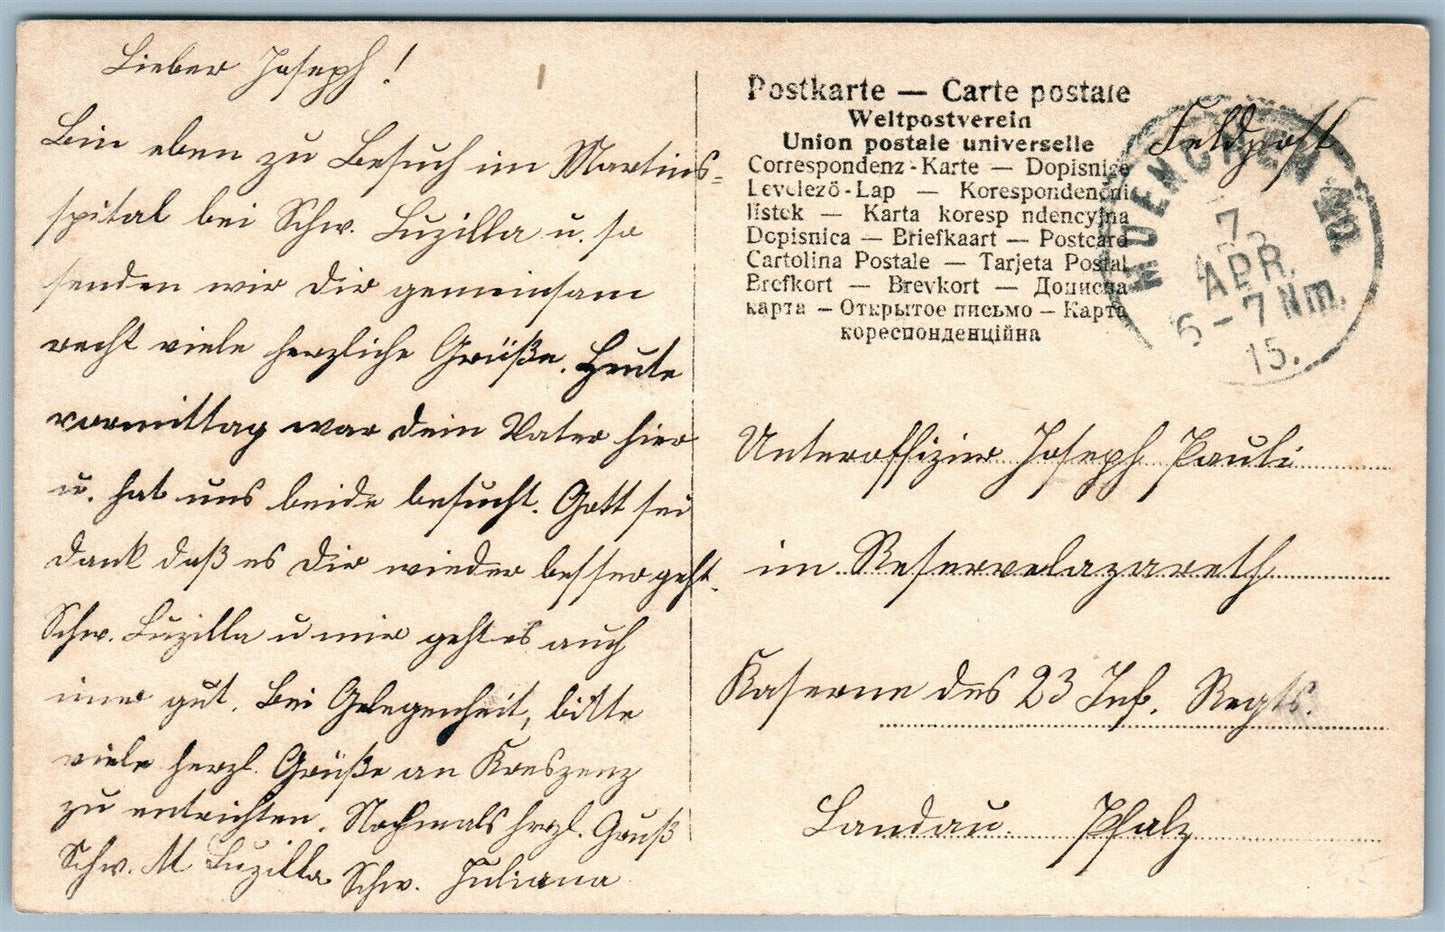 Lieber Joseph!
Bin eben zu Besuch im Martins=
spital bei Schw. Luzilla u. so
senden wir Dir gemeinsam
recht viele herzliche Grüße. Heute
vormittag war dein Vater hier
u. hat uns beide besucht. Gott sei
dank daß es Dir wieder besser geht.
Schw. Luzilla u mir geht es auch
imer gut. Bei Gelegenheit, bitte
viele herzl. Grüße an Kreszenz
zu entrichten. Nochmals herzl. Gruß
Schw. M Luzilla Schw. Juliana
Postkarte — Carte postale
Weltpostverein
Union postale universelle
Correspondenz-Karte — Dopisnice
Levelező-Lap — Korespondenční
lístek — Karta koresp ndencyjna
Dopisnica — Briefkaart — Postcard
Cartolina Postale — Tarjeta Postal
Brefkort — Brevkort — Дописна
карта — Открытое письмо — Карта
кореспонденційна
Feldpost
MUENCHEN
7.
APR.
6-7 Nm.
15.
Unteroffizier Joseph Pauli
im Reservelazareth
Kaserne des 23 Inf. Regts.
Landau Pfalz